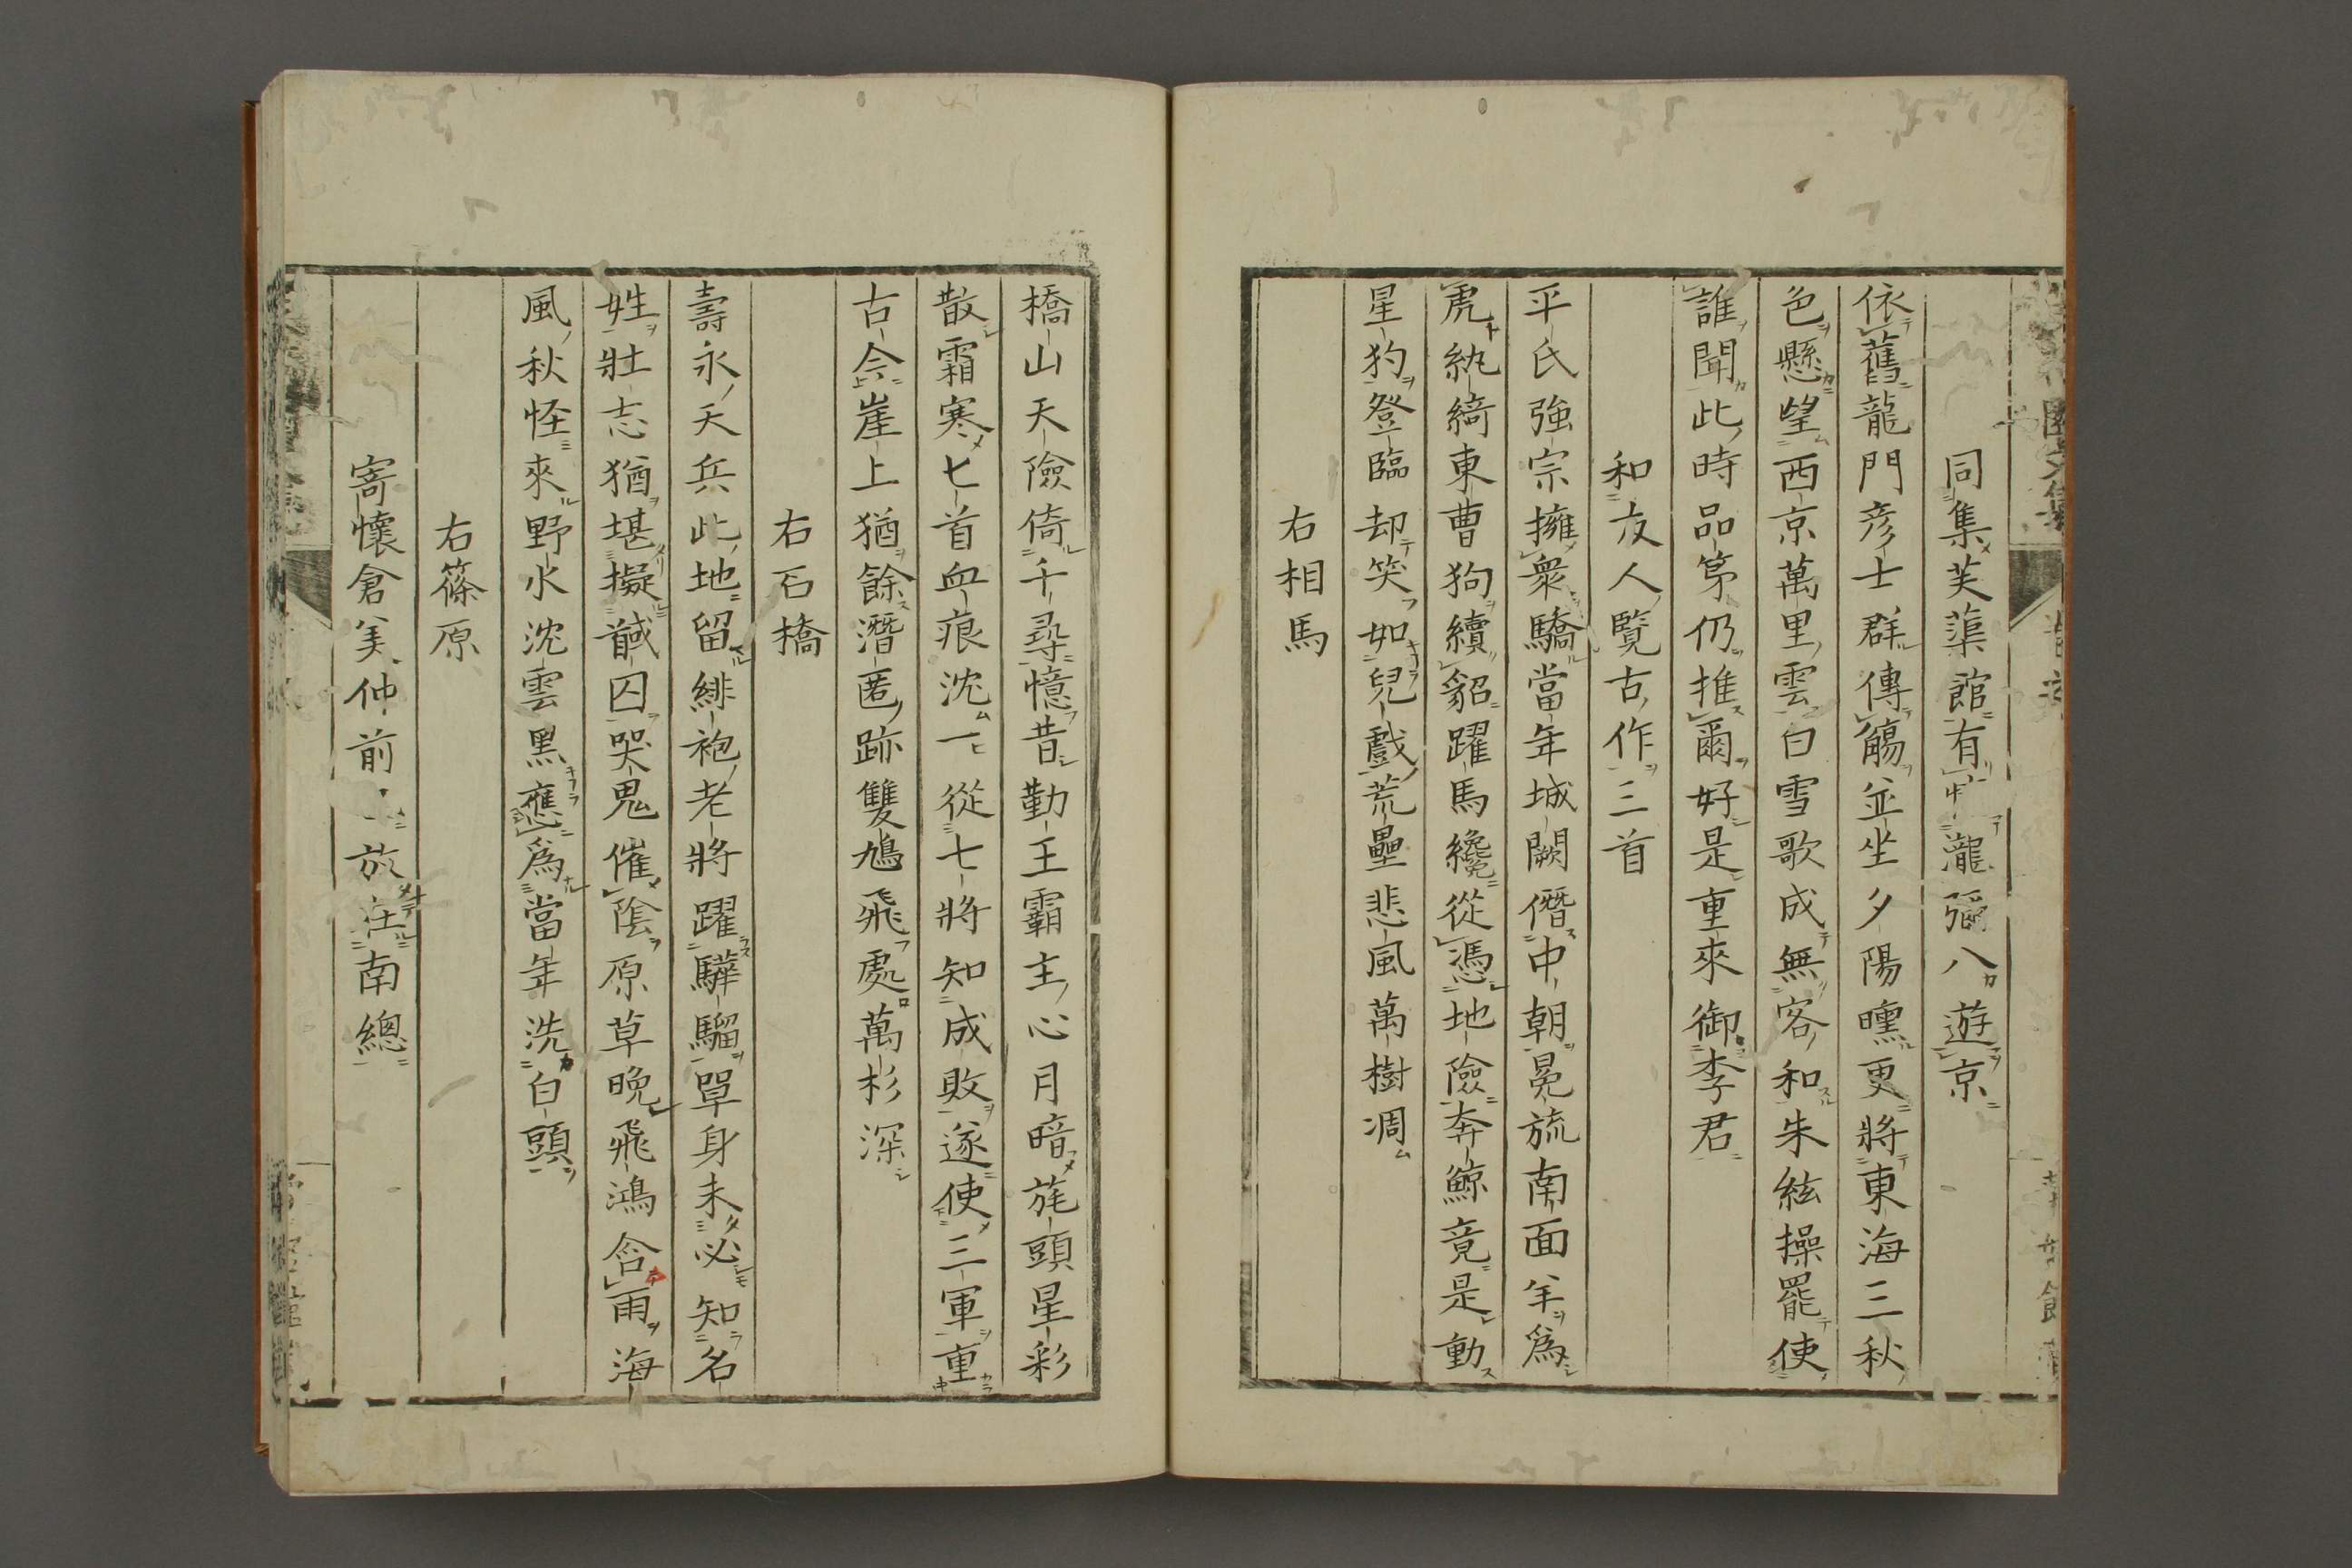 同集芙蕖館有瀧彌八遊京
依舊龍門彦士群傳觴並坐夕陽曛更將東海三秋
色懸望西京萬里雲白雪歌成無客和朱絃操罷使
誰聞此時品第仍推爾好是重來御李君
和友人覽古作三首
平氏強宗擁衆驕當年城闕僭中朝冕旒南面羊爲
虎紈綺東曹狗續貂躍馬纔從憑地險奔鯨竟是動
星杓登臨却笑如兒戲荒壘悲風萬樹凋
右相馬
橋山天險倚千尋憶昔勤王霸主心月暗旄頭星彩
散霜寒匕首血痕沈一從七將知成敗遂使三軍重
古今崖上猶餘潛匿跡雙鳩飛處萬杉深
右石橋
壽永天兵此地留緋袍老將躍驊騮單身未必知名
姓壯志猶堪擬馘囚哭鬼催陰原草晩飛鴻含雨海
風秋怪來野水沈雲黑應爲當年洗白頭
右篠原
寄懷倉美仲前放在南總